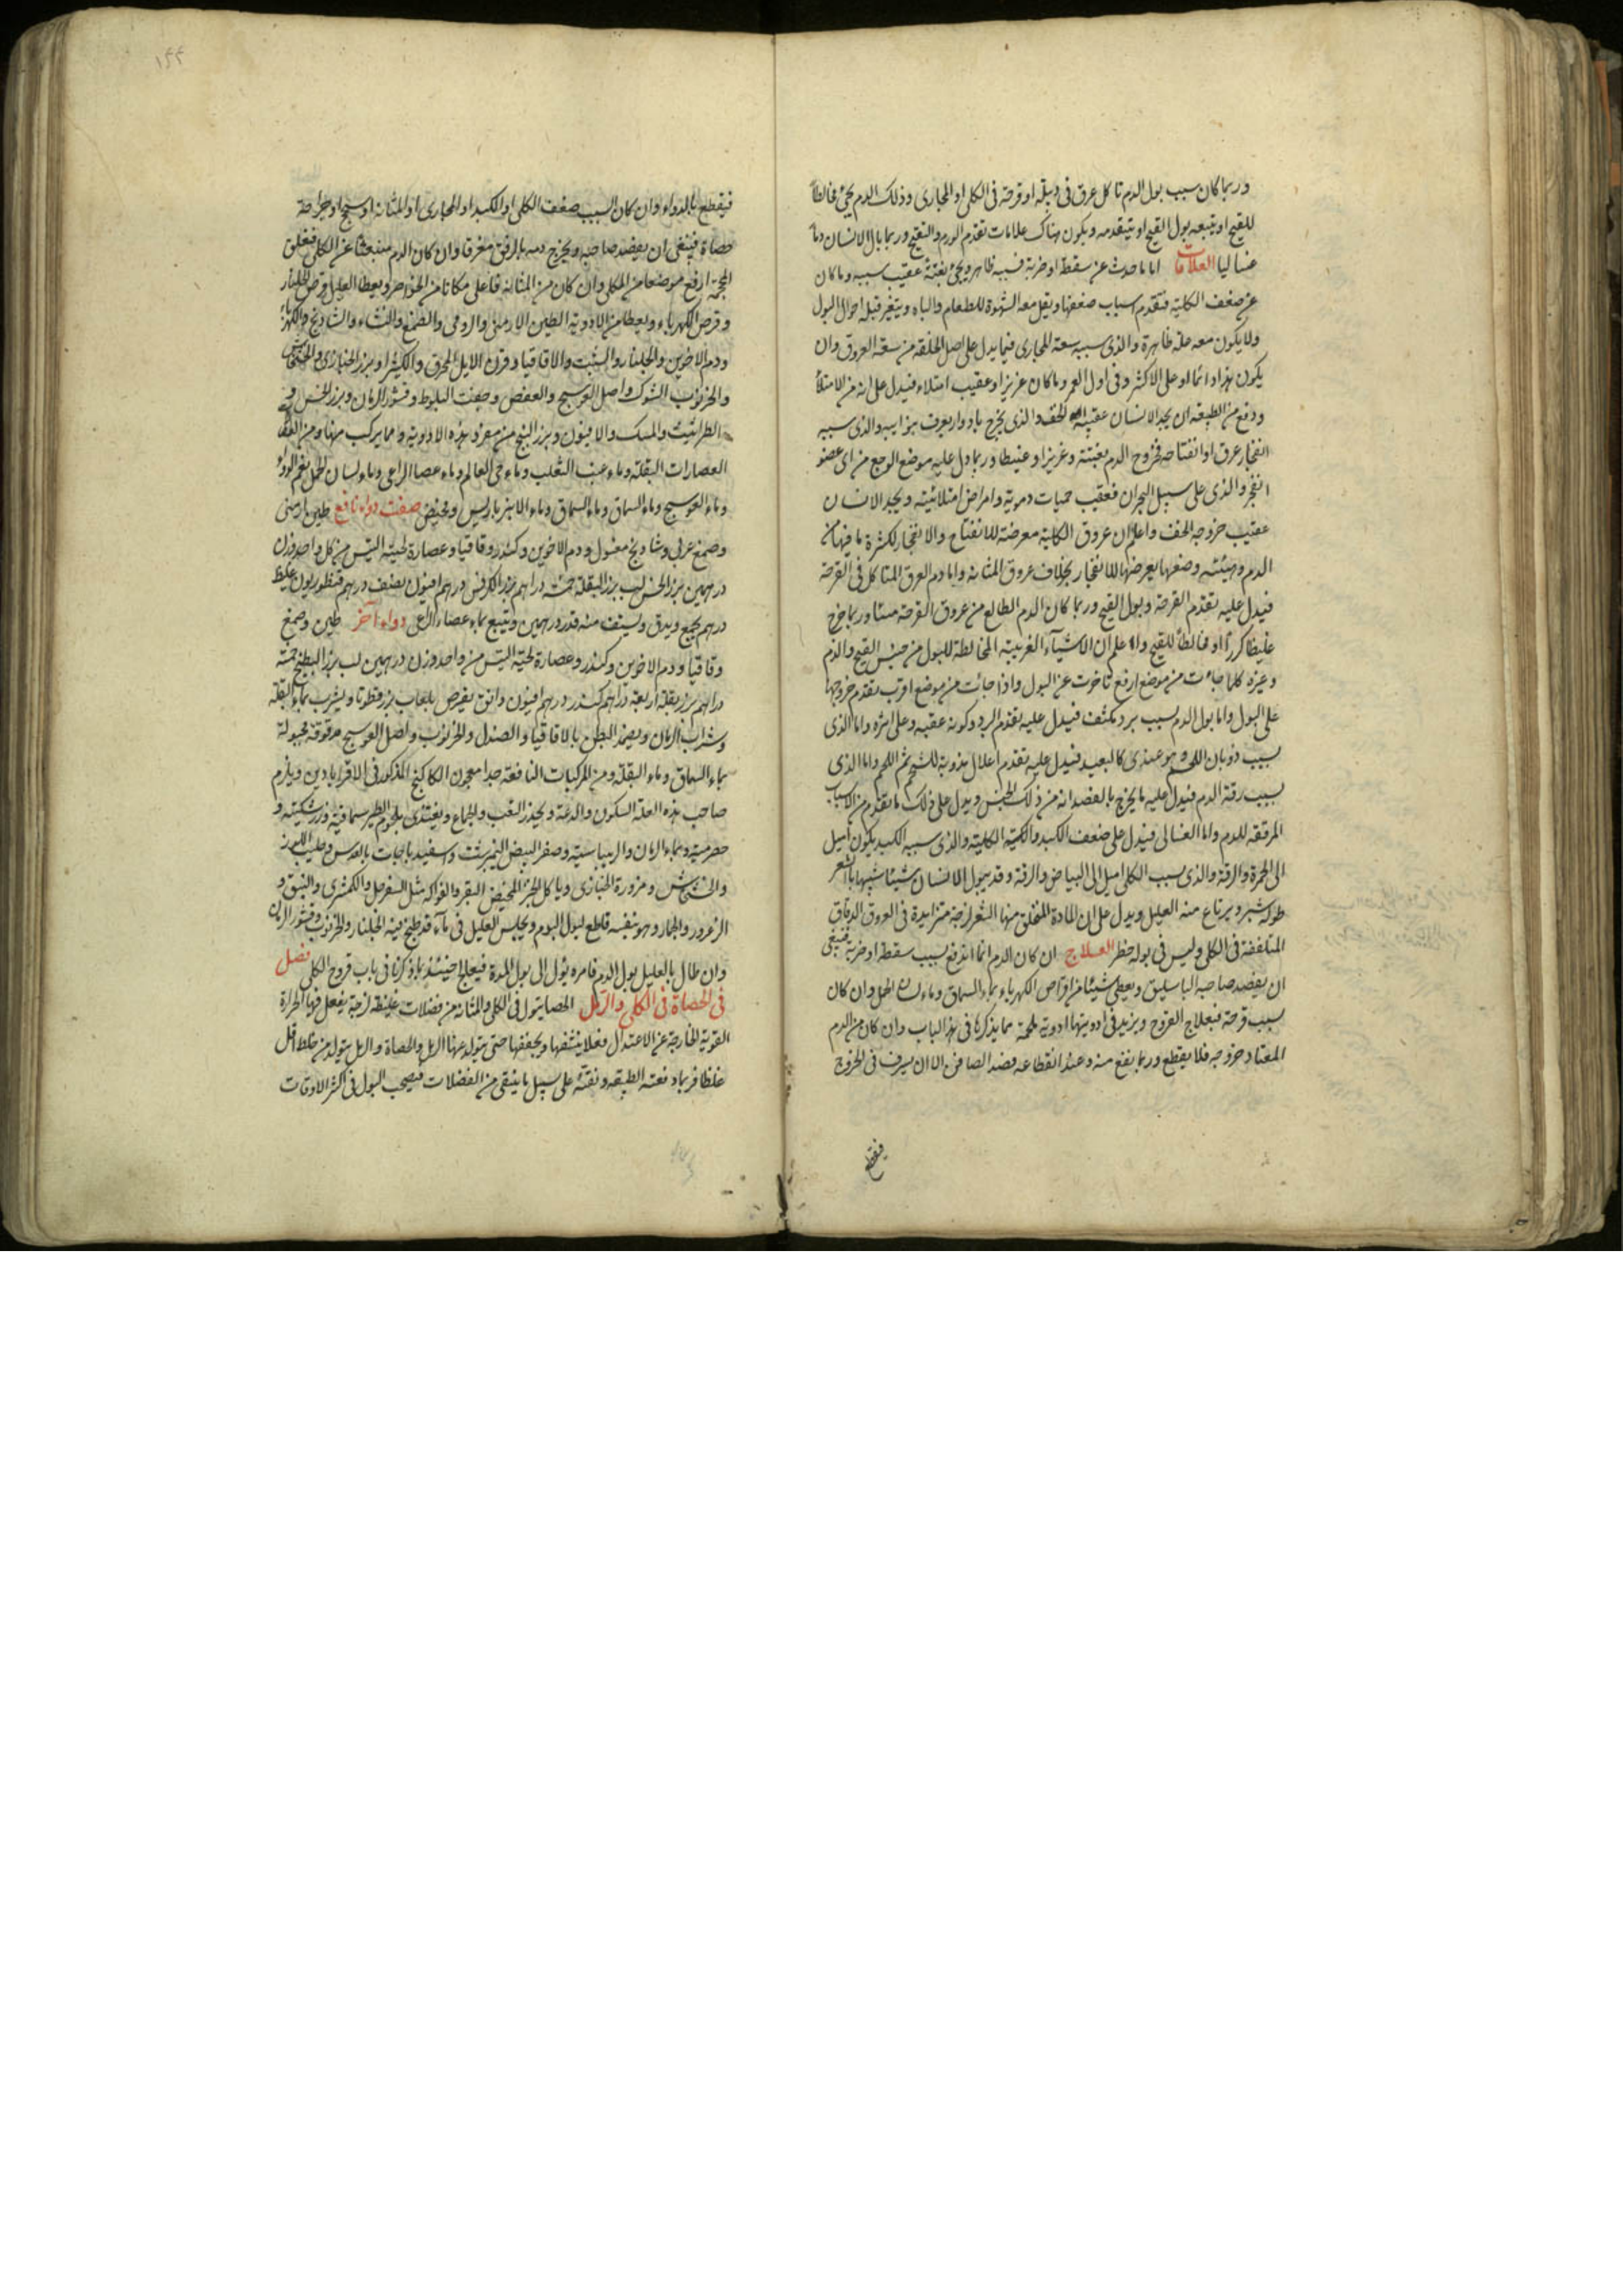 وربما كان سبب بول الدم تاكل عرق فى دبيلة او قرحة فى الكلى او المجارى وذلك الدم يجئ مخالطا
للقيح او يتبعه بول القيح او يتقدمه ويكون هناك علامات تقدم الورم والتقيح وربما بال الانسان دما
غساليا العلامات اما ما حدث عن سقطة او ضربة فسببه ظاهر ويجئ بغتة عقيب سببه وما كان
عن ضعف الكلية فتقدم اسباب ضعفها ويقل معه الشهوة للطعام والباه ويتغير قبله احوال البول
ولا يكون معه علة ظاهرة والذى سببه سعة المجارى فيما يدل على اصل الخلقة من سعة العروق وان
يكون هذا دائما او على الاكثر وفى اول العمر وما كان عزيزا وعقيب امتلاء فيدل على انه من الامتلاء
ودفع من الطبيعة ان يجد الانسان عقيبه الخف والذى يخرج بادوار يعرف بنوايبه والذى سببه
انفجار عرق او انفتاحه فخروج الدم بغتة وغزيرا وعبيطا وربما دل عليه موضع الوجع من اى عضو
انفجر والذى على سبيل البحران فعقيب حميات دموية وامراض امتلائية ويجد الانسان
عقيب خروجه الخف واعلم ان عروق الكلية معرضة للانفتاح والانفجار لكثرة ما فيها من
الدم وهيئته وضعها يعرضها للانفجار بخلاف عروق المثانة واما دم العرق المتاكل فى القرحة
فيدل عليه تقدم القرحة وبول القيح وربما كان الدم الطالع من عروق القرحة منتنا وربما خرج
غليظا كدرا او مخالطا للقيح واعلم ان الاشياء الغريبة المخالطة للبول من جنس القيح والدم
وغيره كلما جاءت من موضع ارفع تاخرت عن البول واذا جاءت من موضع اقرب تقدم خروجها
على البول واما بول الدم بسبب برد مكثف فيدل عليه تقدم البرد وكونه عقيبه وعلى اثره واما الذى
بسبب ذوبان اللحم وهو عندى كالبعيد فيدل عليه تقدم اعلال مذوبة للشحم ثم اللحم واما الذى
بسبب رقة الدم فيدل عليه ما يخرج بالفصد انه من ذلك الجنس ويدل على ذلك ما تقدم من الاسباب
المرققة للدم واما الغسالى فيدل على ضعف الكبد والكلية والذى سببه الكبد يكون اميل
الى الحمرة والرقة والذى بسبب الكلى اميل الى البياض والرقة وقد يبول الانسان شيئا شبيها بالشعر
طوله شبر ويرتاع منه العليل ويدل على ان المادة المتخلق منها الشعر لزجة متزايدة فى العروق الدقاق
المتلففة فى الكلى وليس فى بوله خطر العلاج ان كان الدم انما اندفع بسبب سقطة او ضربة فينبغى
ان يفصد صاحبه الباسليق ويعطى شيئا من اقراص الكهرباء بماء السماق وماء لسان الحمل وان كان
بسبب قرحة فبعلاج القروح ويزيد فى ادويتها ادوية ملحمة مما يذكرها فى هذا الباب وان كان من الدم
المعتاد خروجه فلا يقطع وربما ينفع منه وعند انقطاعه فصد الصافن الا ان يسرف فى الخروج
فيقطع
١٤٤
فيقطع بالدواء وان كان السبب ضعف الكلى او الكبد او المجارى او المثانة او سحج او جراحة
حصاة فينبغى ان يفصد صاحبه ويخرج دمه بالرفق متفرقا وان كان الدم منبعثا عن الكلى فيعلق
المحجمة ارفع موضعا من الكلى وان كان من المثانة فاعلى مكانا من الخواصر ويعطا العليل قرص الجلنار
وقرص الكهرباء ويعطا من الادوية الطين الارمنى والرومى والصمغ والنشاء والشادنج والكهربا
ودم الاخوين والجلنار والشب والاقاقيا وقرن الايل المحرق والكثيرا وبزر الخبازى والخشخاش
والخرنوب الشوك واصل العوسج والعفص وجفت البلوط وقشور الرمان وبزر الخس و
الطراثيث والمسك والافيون وبزر البنج من مفرد هذه الادوية ومما يركب منها ومن
العصارات البقلة وماء عنب الثعلب وماء حى العالم وماء عصا الراعى وماء لسان الحمل نعم الدواء
وماء العوسج وماء السماق وماء السماق وماء الانبرباريس ومخيض صفت دواء نافع طين ارمنى
وصمغ عربى وشادنج مغسول ودم الاخوين وكندر وقاقيا وعصارة لحية التيس من كل واحد وزن
درهمين بزر الخس لب بزر البقلة خمسة دراهم بزر الكرفس درهم افيون نصف درهم قنطوريون غليظ
درهم يجمع ويدق ويستف منه قدر درهمين ويتبع بماء عصا الراعى دواء آخر طين وصمغ
وقاقيا ودم الاخوين وكندر وعصارة لحية التيس من واحد وزن درهمين لب بزر البطيخ خمسة
دراهم بزر بقلة اربعة دراهم كندر درهم افيون دانق يقرص بلعاب بزر قطونا ويشرب بماء البقلة
وشراب الرمان ويضمد البطن بالاقاقيا والصندل والخرنوب واصل العوسج مدقوقة مجبولة
بماء السماق وماء البقلة ومن المركبات النافعة جدا معجون الكاكنج المذكور فى الاقراباذين ويلزم
صاحب هذه العلة السكون والدعة ويحذر التعب والجماع ويغتذى بلحوم الطير سماقية وزرشكية و
حصرمية وبماء الرمان والريباسية وصفر البيض النيمبرشت واسفيدباجات بالعدس وحليب اللوز
والخشخاش ومزورة الخبازى وياكل الخبز المخيض البقر والفواكه مثل السفرجل والكمثرى والنبق و
الزعرور والجمار وهو بنفسه قاطع لبول الدم ويجلس العليل فى ماء قد طبخ فيه الجلنار والخرنوب وقشور الرمان
وان طال بالعليل بول الدم فامره يؤل الى بول المدة فيعالج حينئذ بما ذكرنا فى باب قروح الكلى فصل
فى الحصاة فى الكلى والرمل الحصا يتولد فى الكلى والمثانة من فضلات غليظة لزجة يفعل فيها الحرارة
القوية الخارجة عن الاعتدال فعلا ينشفها ويجففها حتى يتولد عنها الرمل والحصاة والرمل يتولد من خلط اقل
غلظا فربما دفعته الطبيعة ونقته على سبيل ما ينقى من الفضلات فيصحب البول فى اكثر الاوقات